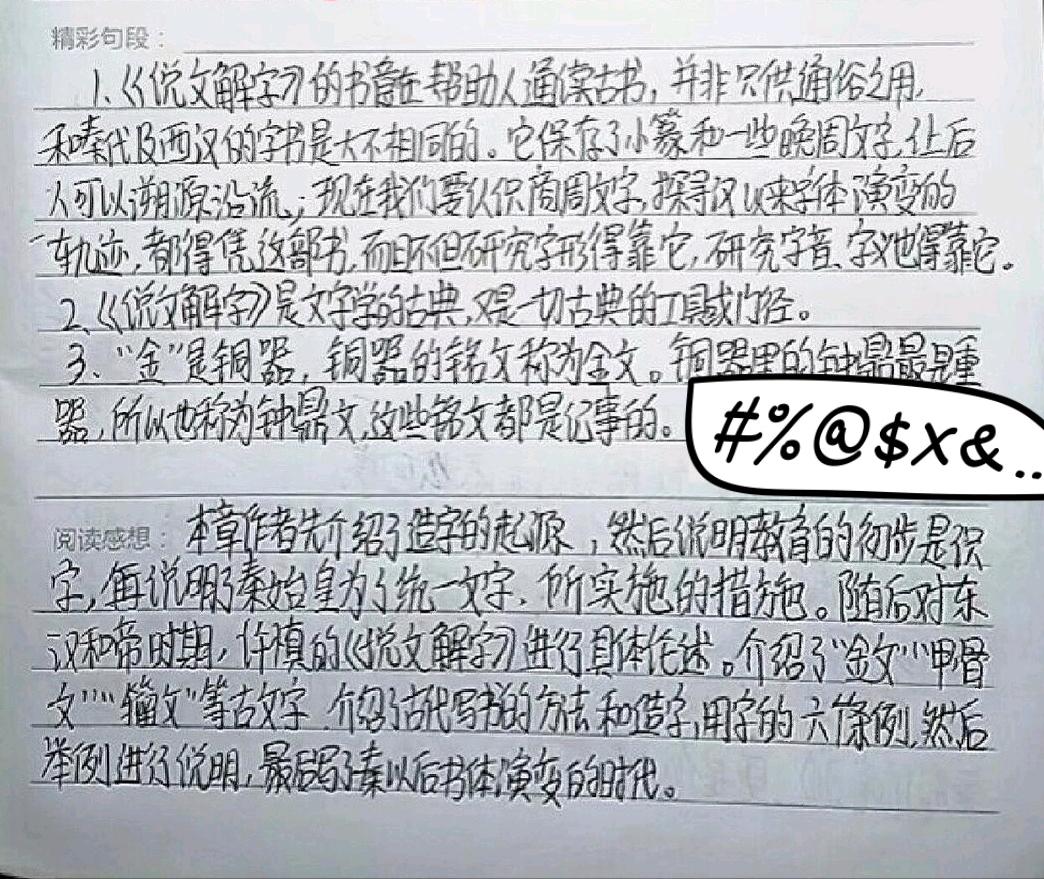 精彩句段：
1.《说文解字》的书意在帮助人通读古书，并非只供通俗之用，
和秦代及西汉的字书是大不相同的。它保存了小篆和一些晚周文字，让后
人可以溯源沿流；现在我们要认识商周文字，探寻汉以来字体演变的
轨迹，都得凭这部书，而且不但研究字形得靠它，研究字音、字义也得靠它。
2、《说文解字》是文字学的古典，又是一切古典的工具或门径。
3、“金”是铜器，铜器的铭文称为金文。铜器里的钟鼎最是重
器，所以也称为钟鼎文，这些铭文都是记事的。
#%@$X&..
阅读感想：本章作者先介绍了造字的起源，然后说明教育的初步是识
字，再说明了秦始皇为了统一文字，所实施的措施。随后对东
汉和帝时期，许慎的《说文解字》进行具体论述。介绍了“金文”“甲骨
文”“籀文”等古文字，介绍了古代写书的方法和造字，用字的六条例，然后
举例进行说明，最后写了秦以后书体演变的时代。